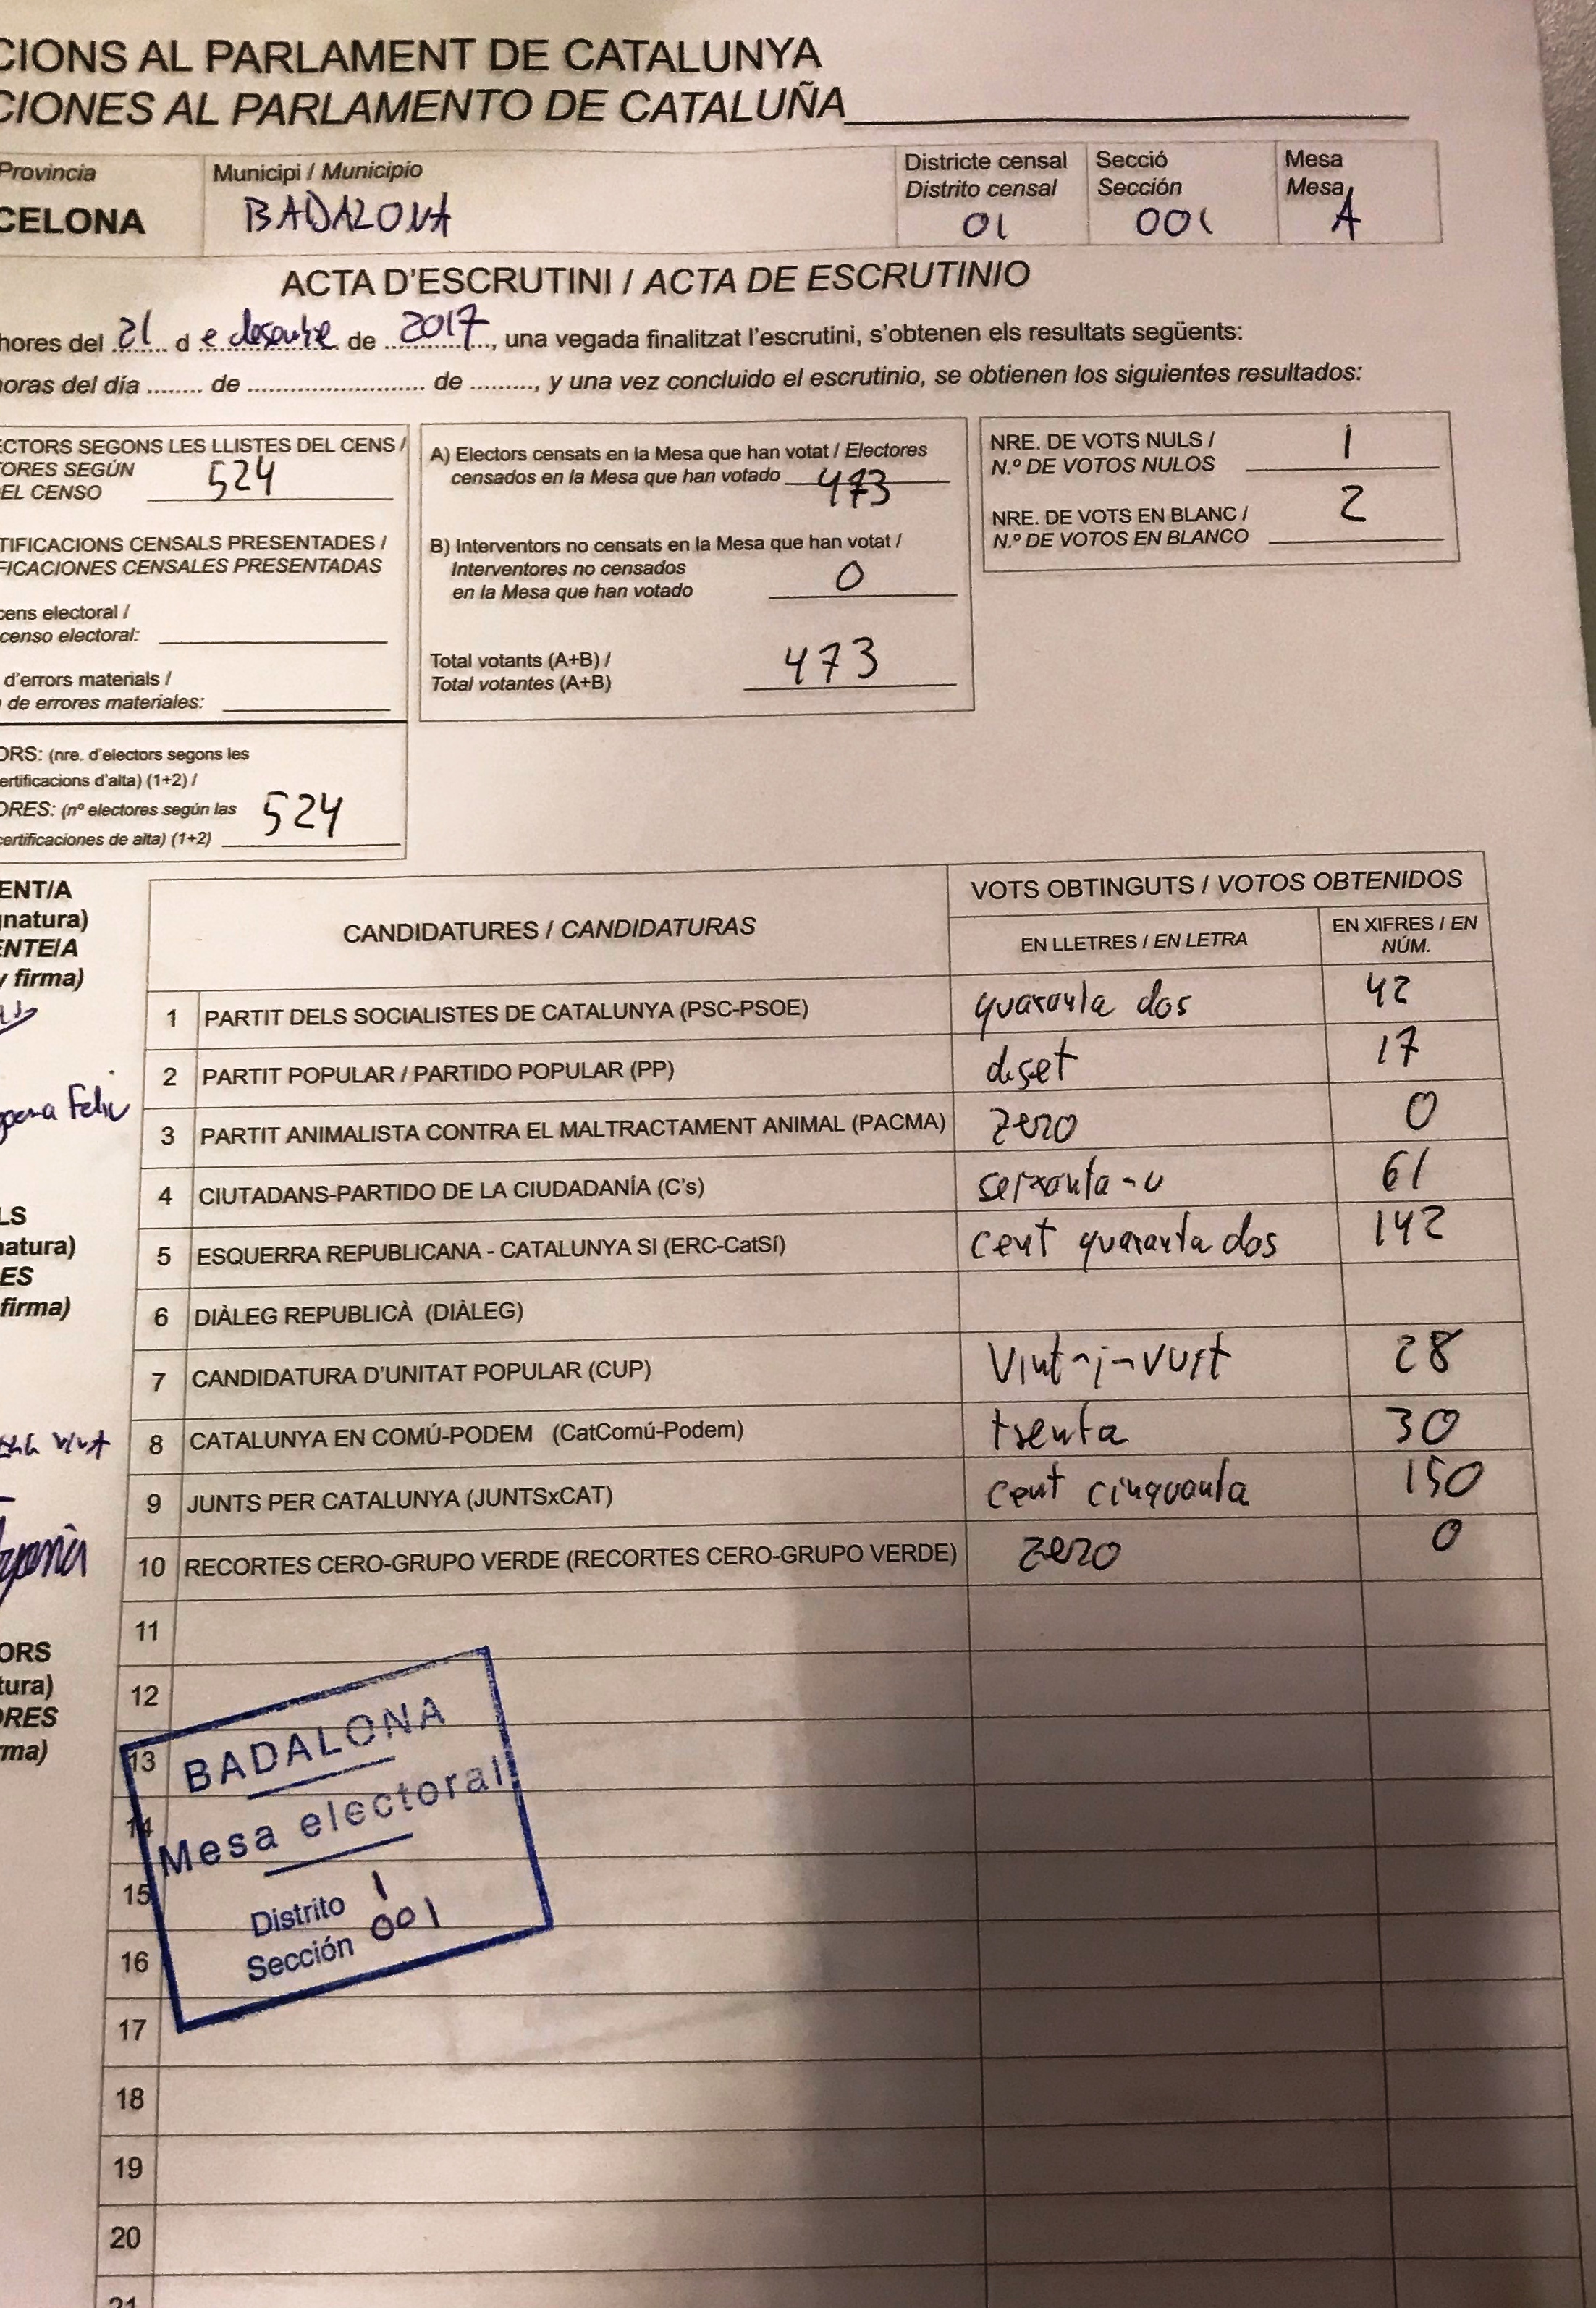 CIONS AL PARLAMENT DE CATALUNYA
CIONES AL PARLAMENTO DE CATALUÑA
Provincia
CELONA
Municipi / Municipio
BADALONA
Districte censal
Distrito censal
01
Secció
Sección
001
Mesa
Mesa
A
ACTA D'ESCRUTINI / ACTA DE ESCRUTINIO
hores del 21 de desembre de 2017, una vegada finalitzat l'escrutini, s'obtenen els resultats següents:
horas del día ........ de ........................ de ........, y una vez concluido el escrutinio, se obtienen los siguientes resultados:
ECTORS SEGONS LES LLISTES DEL CENS /
TORES SEGÚN
EL CENSO
524
TIFICACIONS CENSALS PRESENTADES /
FICACIONES CENSALES PRESENTADAS
cens electoral /
censo electoral:
d'errors materials /
de errores materiales:
ORS: (nre. d'electors segons les
ertificacions d'alta) (1+2) /
ORES: (nº electores según las
certificaciones de alta) (1+2)
524
A) Electors censats en la Mesa que han votat / Electores
censados en la Mesa que han votado
473
B) Interventors no censats en la Mesa que han votat /
Interventores no censados
en la Mesa que han votado
0
Total votants (A+B) /
Total votantes (A+B)
473
NRE. DE VOTS NULS /
N.º DE VOTOS NULOS
1
NRE. DE VOTS EN BLANC /
N.º DE VOTOS EN BLANCO
2
CANDIDATURES / CANDIDATURAS
VOTS OBTINGUTS / VOTOS OBTENIDOS
EN LLETRES / EN LETRA
EN XIFRES / EN
NÚM.
1 PARTIT DELS SOCIALISTES DE CATALUNYA (PSC-PSOE) quaranta dos 42
2 PARTIT POPULAR / PARTIDO POPULAR (PP) disset 17
3 PARTIT ANIMALISTA CONTRA EL MALTRACTAMENT ANIMAL (PACMA) zero 0
4 CIUTADANS-PARTIDO DE LA CIUDADANÍA (C's) seixanta-u 61
5 ESQUERRA REPUBLICANA - CATALUNYA SÍ (ERC-CatSÍ) cent quaranta dos 142
6 DIÀLEG REPUBLICÀ (DIÀLEG)
7 CANDIDATURA D'UNITAT POPULAR (CUP) Vint-i-vuit 28
8 CATALUNYA EN COMÚ-PODEM (CatComú-Podem) trenta 30
9 JUNTS PER CATALUNYA (JUNTSxCAT) cent cinquanta 150
10 RECORTES CERO-GRUPO VERDE (RECORTES CERO-GRUPO VERDE) zero 0
11
12
13
14
15
16
17
18
19
20
21
BADALONA
Mesa electoral
Distrito 1
Sección 001
ENT/A
natura)
ENTE/A
y firma)
LS
natura)
ES
firma)
ORS
tura)
ORES
rma)